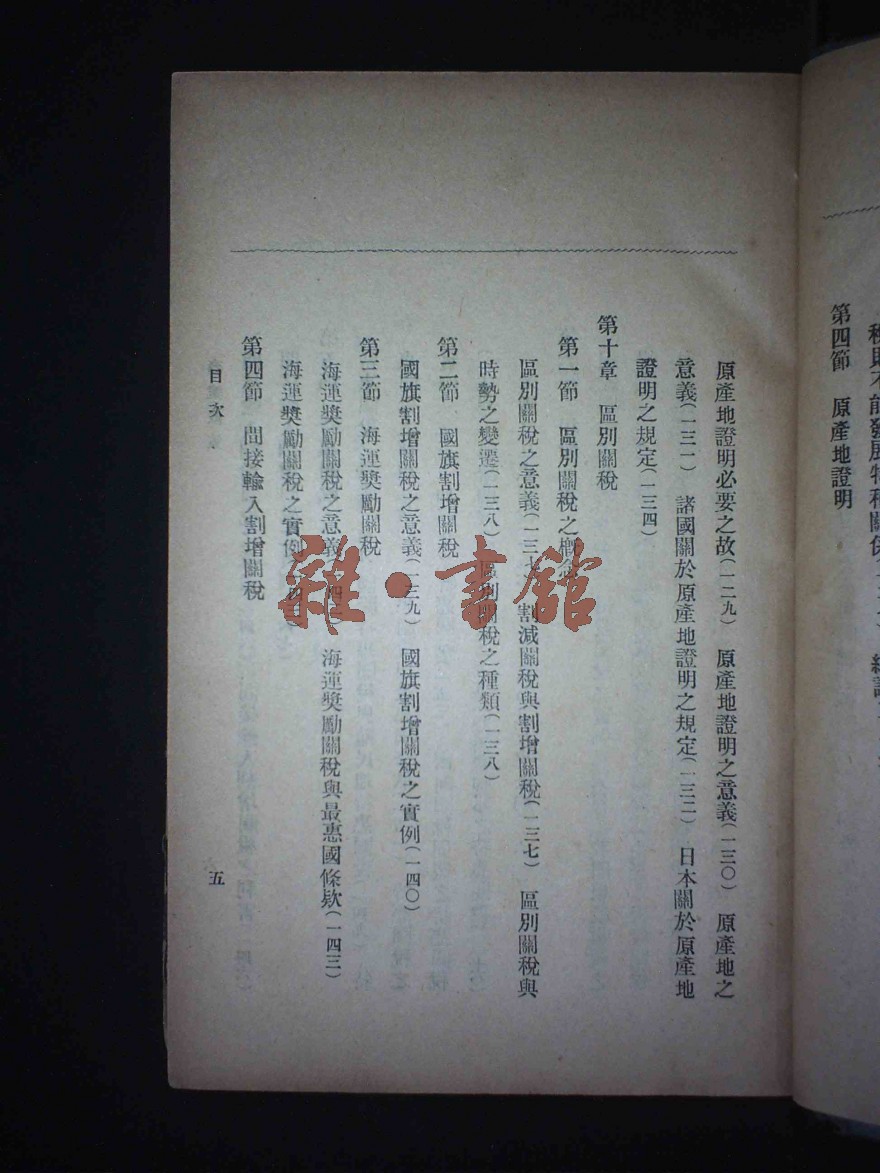 第四節　原產地證明
原產地證明必要之故（一二九）　原產地證明之意義（一三〇）　原產地之
意義（一三一）　諸國關於原產地證明之規定（一三二）　日本關於原產地
證明之規定（一三四）
第十章　區別關稅
第一節　區別關稅之概念
區別關稅之意義（一三七）　割減關稅與割增關稅（一三七）　區別關稅與
時勢之變遷（一三八）　區別關稅之種類（一三八）
第二節　國旗割增關稅
國旗割增關稅之意義（一三九）　國旗割增關稅之實例（一四〇）
第三節　海運獎勵關稅
海運獎勵關稅之意義　海運獎勵關稅與最惠國條欵（一四三）
海運獎勵關稅之實例
第四節　間接輸入割增關稅
目次
五
雜·書館